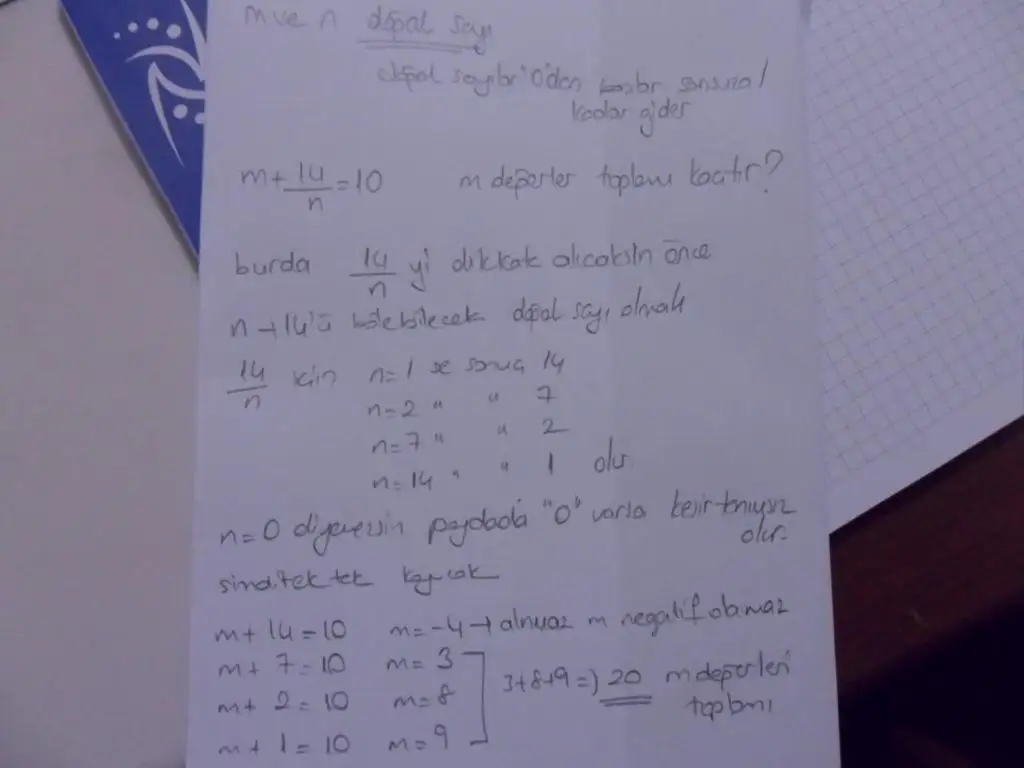 m ve n doğal sayı
doğal sayılar "0"den başlar sonsuza
kadar gider
m+14/n=10 m değerler toplamı kaçtır?
burda 14/n yi dikkak alıcaksın önce
n→14'ü bölebilecek doğal sayı olmalı
14/n için n=1 se sonuç 14
n=2 " " 7
n=7 " " 2
n=14 " " 1 olur
n=0 diyemezsin paydada "0" varsa kesir tanımsız
olur.
şimdi tek tek koyucak
m+14=10 m=-4→alınmaz m negatif olamaz
m+7=10 m=3
m+2=10 m=8
m+1=10 m=9
3+8+9=)20 m değerleri
toplamı